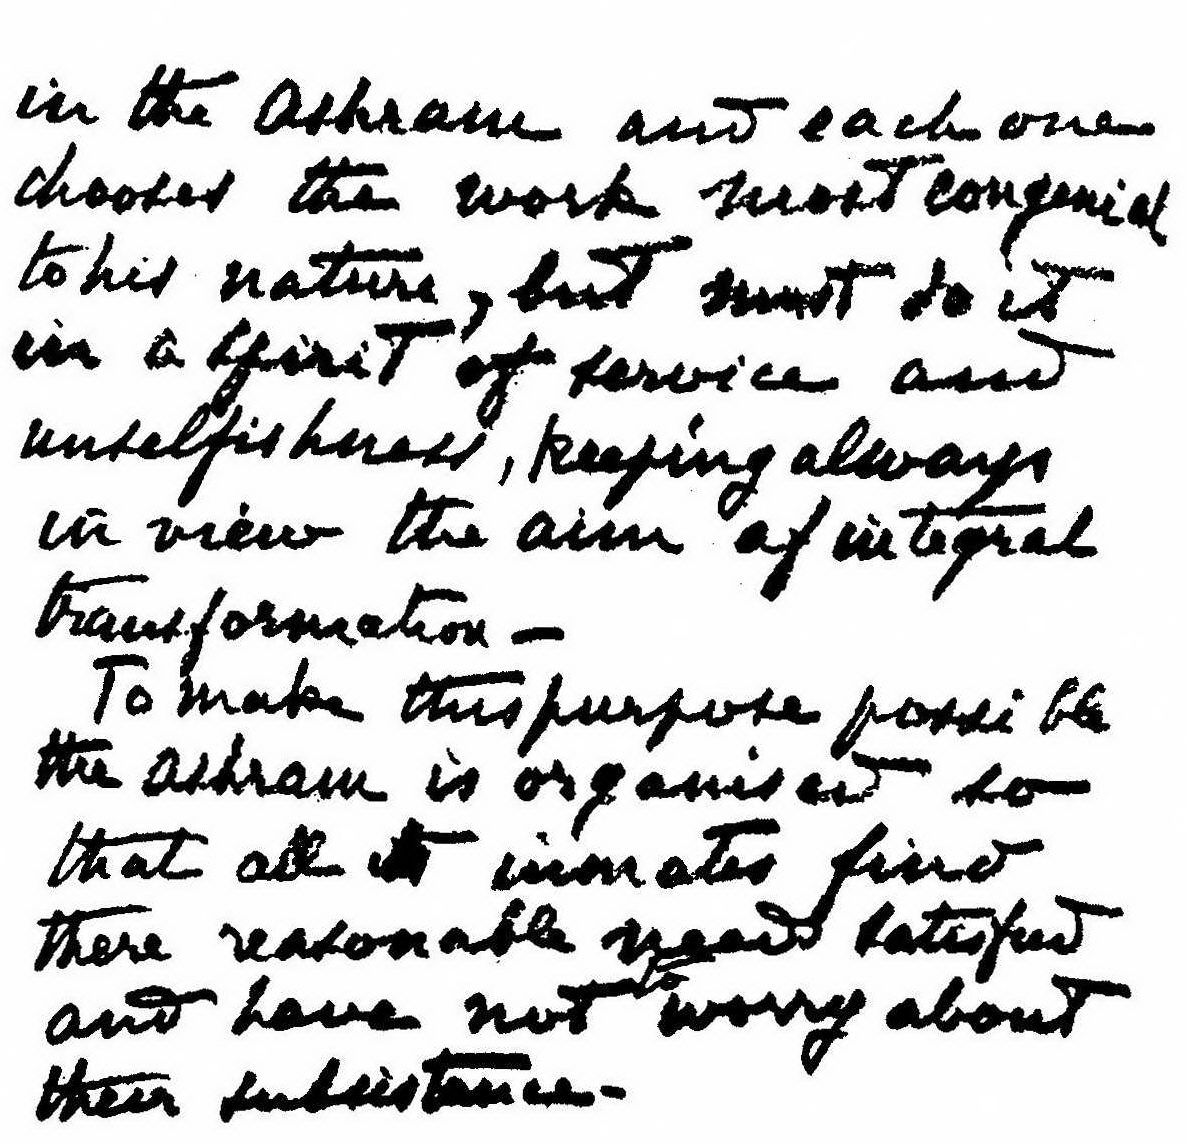 in the Ashram and each one
chooses the work most congenial
to his nature, but must do it
in a spirit of service and
unselfishness, keeping always
in view the aim of integral
transformation –
To make this purpose possible
the Ashram is organised so
that all its inmates find
there reasonable needs satisfied
and have not to worry about
their subsistence –